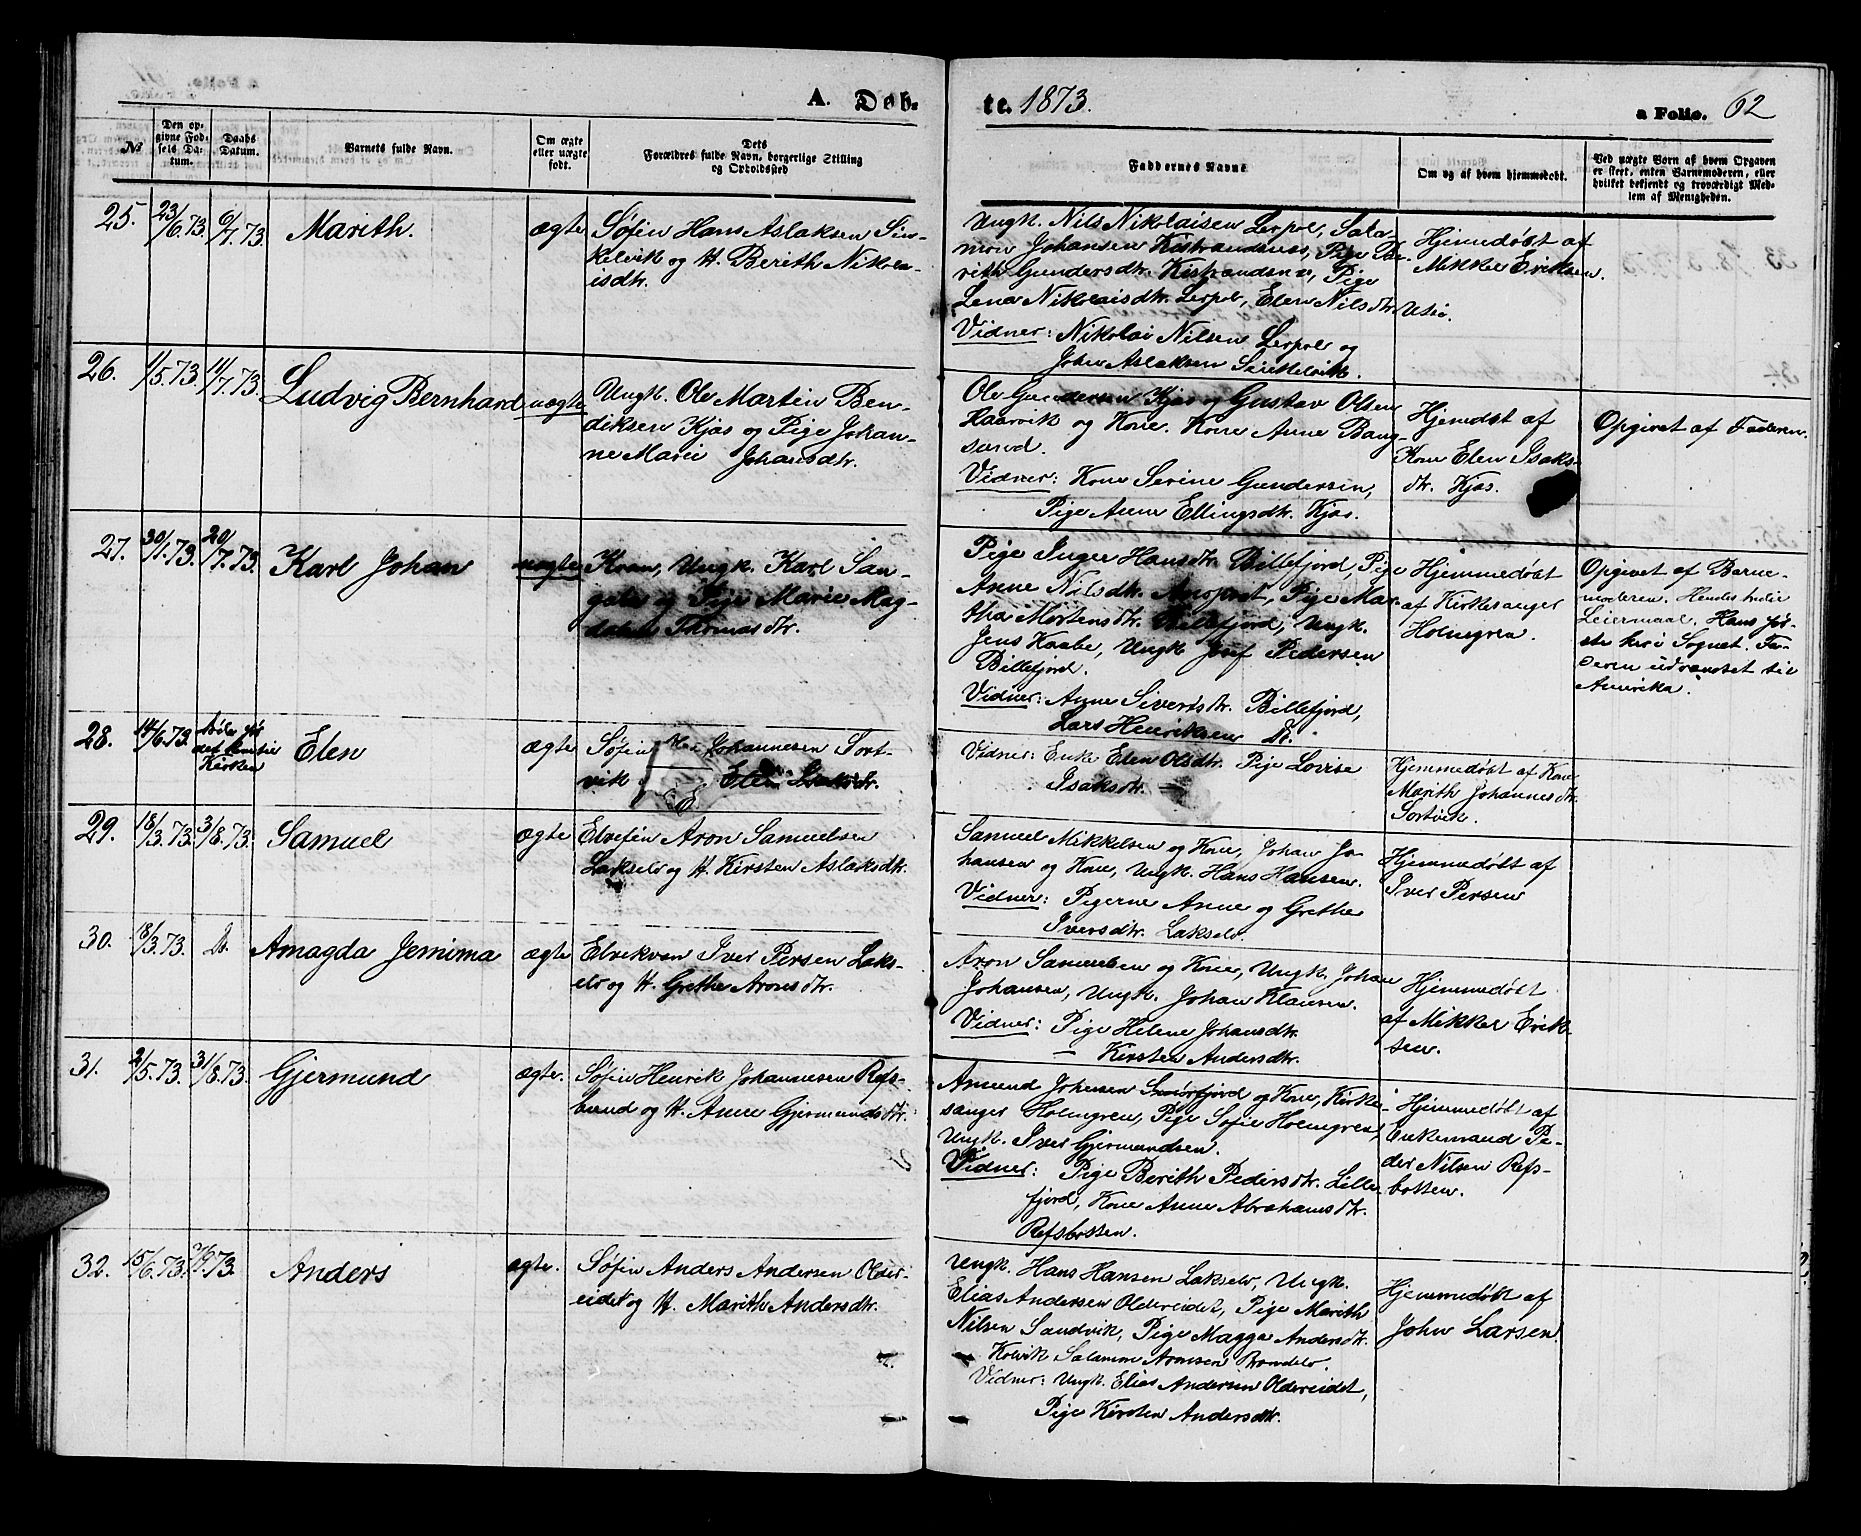 A. Døb-
te. 1873.
a Folio. 62
No
Den op-
givne Fød-
sels Da-
tum.
Daabs
Datum.
Barnets fulde Navn.
Om ægte
eller uægte
født.
Dets
Forældres fulde Navn, borgerlige Stilling
og Opholdssted
Faddernes Navne
Om og af hvem hjemmedøbt.
Ved uægte Børn af hvem Opgaven
er skeet, enten Barnemoderen, eller
hvilket bekjendt og troværdigt Med-
lem af Menigheden.
25. 23/6.73. 6/7.73. Marith. ægte
Søfin Hans Aslaksen
kelvik og H. Berith Nikola-
isdtr.
Ungk. Nils Nikolaisen Lerpol, Salo-
mon Johansen Kistrandsnes, Pige Be-
rith Gundersdtr. Kistrandsnes, Pige
Lena Nikolaisdtr. Lerpol, Elen Nilsdtr.
Vidner: Nikolai Nilsen Lerpol og
John Aslaksen
Hjemmedøbt af
Mikkel Eriksen.
26. 1/5.73. 14/7.73. Ludvig Bernhard uægte
Ungk. Ole Martin Ben-
diksen Kjæs og Pige Johan-
ne Marie Johansdtr.
Ole Gundersen Kjæs og Gustav Olsen
Haarvik og Kone. Kone Anne Baug-
Vidner: Kone Serine Gundersen,
Pige Anne Ellingsdtr. Kjæs.
Hjemdøbt af
Kone Elen Isaks-
dtr. Kjæs.
Opgivet af Faderen.
27. 30/1.73. 20/7.73. Karl Johan uægte
Kvæn, Ungk. Karl
og Pige Marie Mag-
dalena Thomasdtr.
Pige Inger Hansdtr. Billefjord, Pige
Anne Nilsdtr. Pige Mar-
tha Mortensdtr. Billefjord, Ungk.
Jens Kaabe, Ungk. Josef Pedersen
Billefjord.
Vidner: Anne Sivertsdtr. Billefjord,
Lars Henriksen D.
Hjemmedøbt
af Kirkesanger
Holmgren.
Opgivet af Barne-
moderen. Hendes
Leiermaal. Hans før-
ste her i Sognet. Fa-
deren udvandret til
Amerika.
28. 14/6.73 Døde før
det kom til
Kirken
Elen ægte
Søfin Johannesen Sort-
vik Elen
Vidner: Enke Elen Olsdtr. Pige Lovise
Isaksdtr.
Hjemmedøbt af Kone
Marith Johannesdtr.
Sortvik.
29. 18/3.73. 3/8.73. Samuel ægte
Elvefin Aron Samuelsen
Lakselv og H. Kirsten Aslaksdtr.
Samuel Mikkelsen og Kone, Johan Jo-
hansen og Kone, Ungk. Hans Hansen.
Vidner: Pigerne Anne og Grethe
Iversdtr. Lakselv.
Hjemmedøbt af
Iver Persen
30. 18/3.73. D. Amagda Jemima ægte
Elvekvæn Iver Persen Laks-
elv og H. Grethe Aronsdtr.
Aron Samuelsen og Kone, Ungk. Johan
Johansen, Ungk. Johan Klausen.
Vidner: Pige Helene Johansdtr.
— Kirsten Andersdtr.
Hjemmedøbt
af Mikkel Erik-
sen.
31. 2/5.73. 31/8.73. Gjermund ægte.
Søfin Henrik Johannesen Refs-
bund og H. Anne Gjermundsdtr.
Amund Johnsen Smørfjord og Kone, Kirke-
sanger Holmgren, Pige Sofie Holmgren,
Ungk. Iver Gjermundsen.
Vidner: Pige Berith Pedersdtr. Lille-
fjord, Kone Anne Abrahamsdtr.
Refsbotten.
Hjemmedøbt af
Enkemand Pe-
der Nilsen Refs-
botten.
32. 15/6.73. Anders ægte.
Søfin Anders Andersen Older-
eidet og H. Marith Andersdtr.
Ungk. Hans Hansen Lakselv, Ungk.
Elias Andersen Oldereidet, Pige Marith
Nilsen Sandvik, Pige Magga Andersdtr.
Kolvik
Vidner: Ungk. Elias Andersen Oldereidet,
Pige Kirsten Andersdtr.
Hjemmedøbt af
John Larsen.